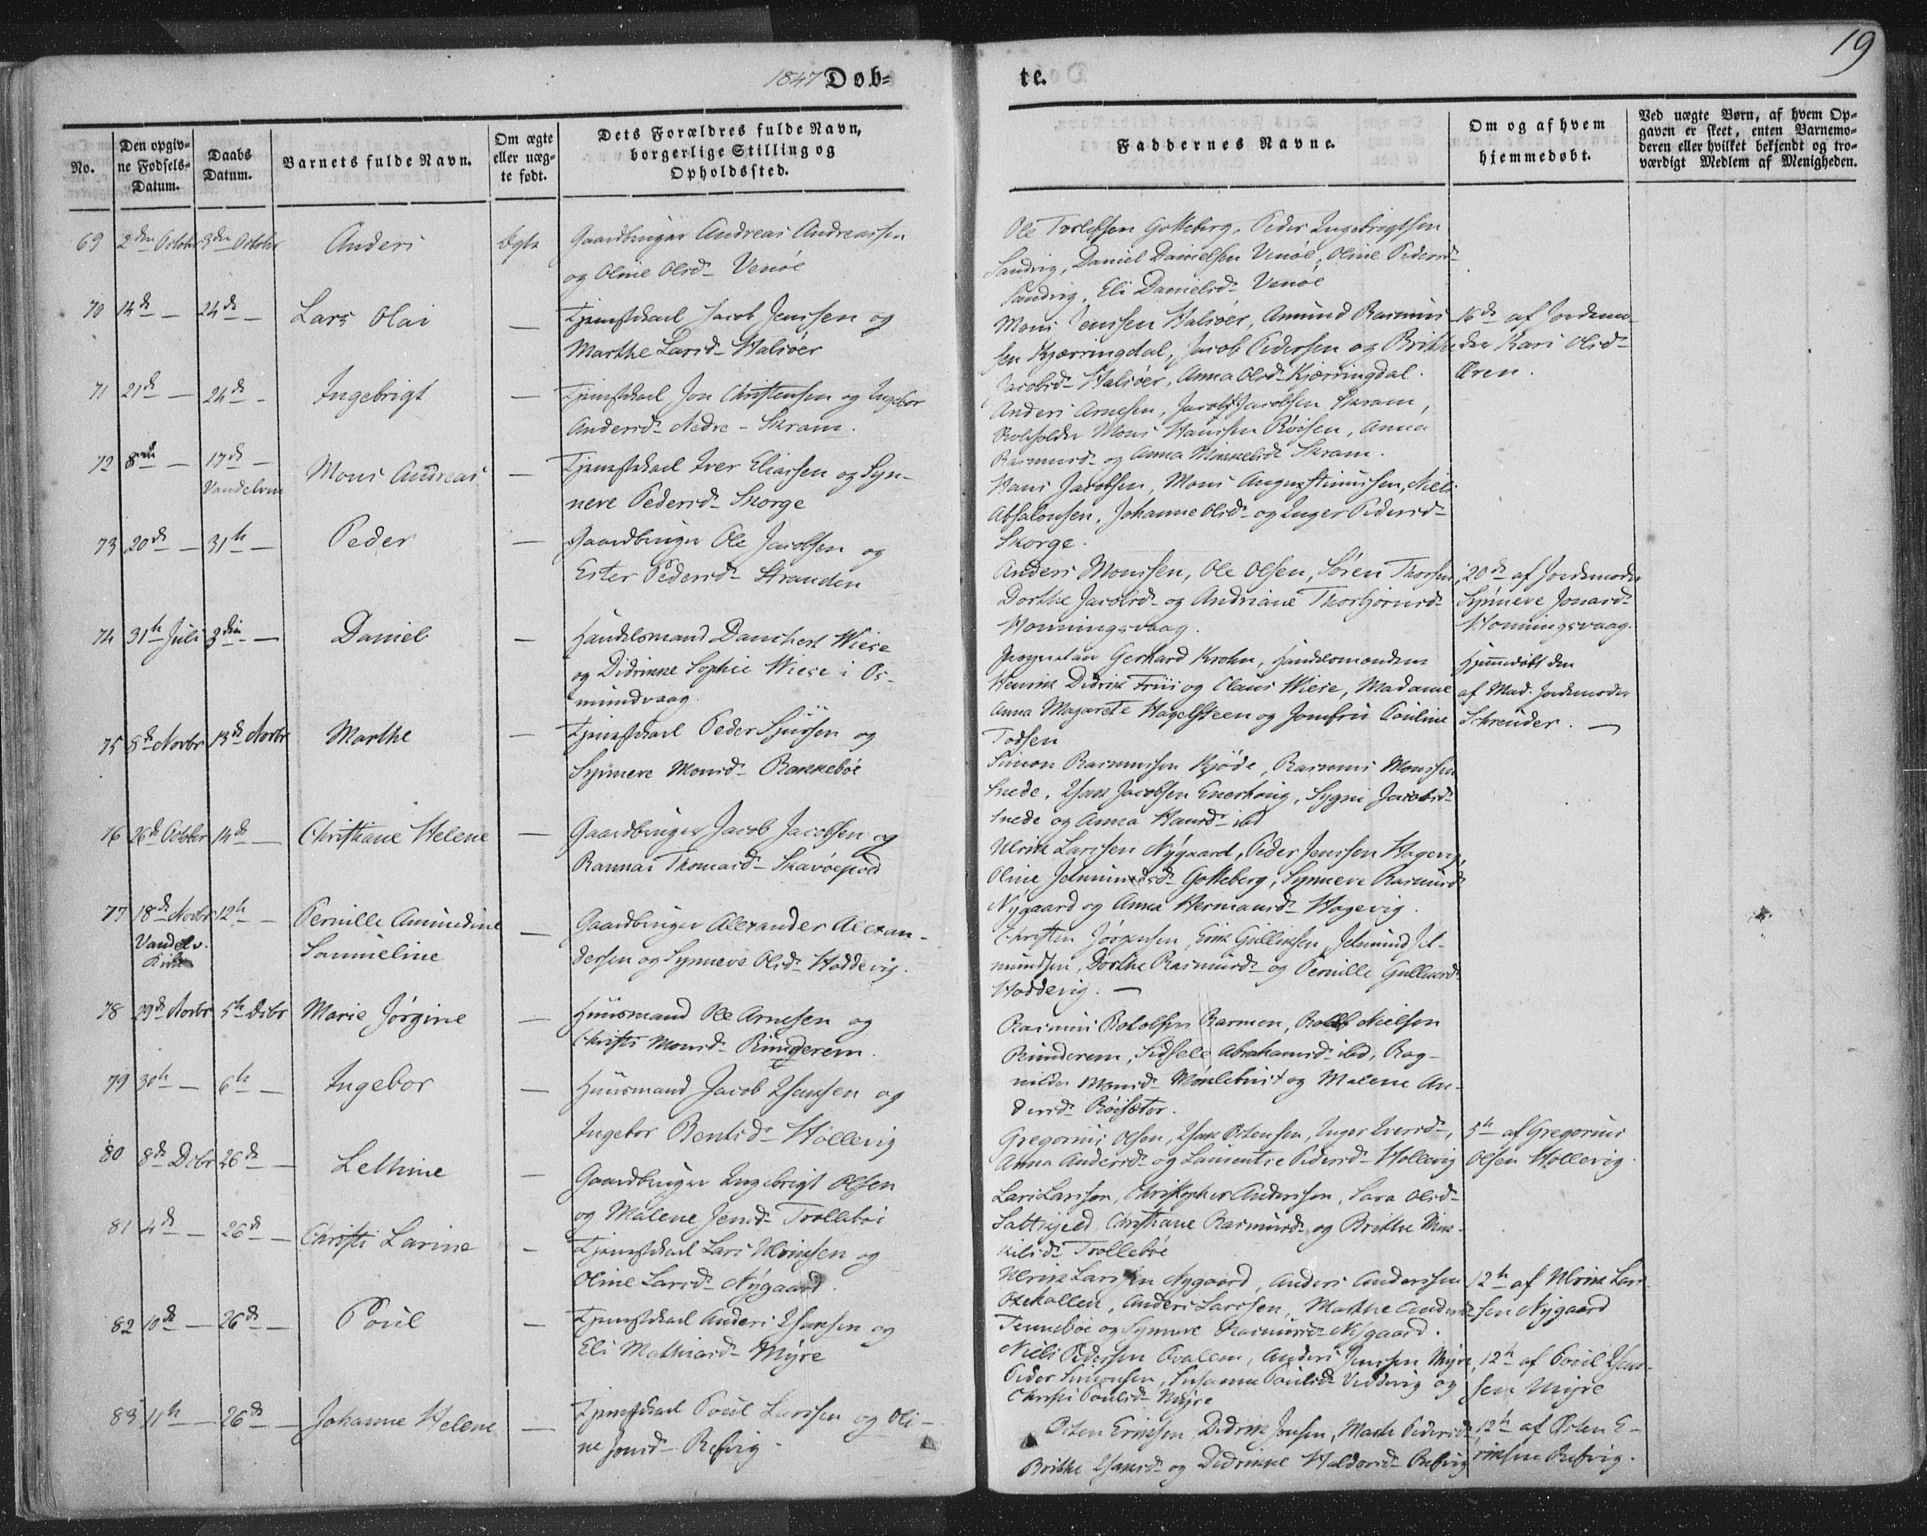 19
1847 Døb-
te.
No.
Den opgiv-
ne Fødsels-
Datum.
Daabs
Datum.
Barnets fulde Navn.
Om ægte
eller uæg-
te født.
Dets Forældres fulde Navn,
borgerlige Stilling og
Opholdssted.
Faddernes Navne.
Om og af hvem
hjemmedøbt.
Ved uægte Børn, af hvem Op-
gaven er skeet, enten Barnemo-
deren eller hvilket bekjendt og tro-
værdigt Medlem af Menigheden.
69 2den Octobr 3die Octobr Anders Ægte Gaardbruger Andreas Andreassen
og Oline Olsd. Venöe
Ole Torlefsen Gotteberg, Peder Ingebrigtsen
Sandvig, Daniel Danielsen Venöe, Oline Pedersd.
Sandvig, Eli Danielsd. Venöe
70 14de — 24de — Lars Olai — Tjenestekarl Jacob Jenssen og
Marthe Larsd. Halsöer
Mons Jenssen Halsöer, Amund Rasmus-
sen Kjærringdal, Jacob Pedersen og Brithe
Jacobsd. Halsöer, Anna Olsd. Kjærringdal.
15de af Jordemo-
der Kari Olsd.
Øren.
71 21de — 24de — Ingebrigt — Tjenestekarl Jon Christensen og Ingebor
Andersd. Nedre-Skram.
Anders Arnesen, Jacob Jacobsen Skram,
Mons Hanssen Röisen, Anna
Rasmusd. og Anna Mikkelsd. Skram.
72 8de — 17de — Mons Andreas — Tjenestekarl Iver Eliassen og Syn-
Vandelven
neve Pedersd. Skorge
Hans Jacobsen, Mons Augustinussen, Niels
Absalonsen, Johanne Olsd. og Inger Pedersd.
Skorge.
73 20de — 31te — Peder — Gaardbruger Ole Jacobsen og
Ester Pedersd. Stranden
Anders Monssen, Ole Olsen, Sören Thorsen,
Dorthe Jacobsd. og Andriane Thorbjörnsd.
Honningsvaag.
20de af Jordemoder
Synneve Jonasd.
Honningsvaag.
74 31te Juli 3die — Daniel — Handelsmand Danchert Wiese
og Didrikke Sophie Wiese i Os-
mundvaag.
Gerhard Krohn, Handelsmændene
Henrik Didrik Friis og Claus Wiese, Madame
Anna Magarete Hagelsteen og Jomfru Pauline
Todsen
Hjemmedöbt den
af Mad. Jordemoder
Schreuder. —
75 5te Novbr 13de Novbr Marthe — Tjenestekarl Peder Sjursen og
Synneve Monsd. Bakkeböe
Simon Rasmussen Kjöde, Rasmus Monssen
Hans Jacobsen Sygni Jacobsd.
og Anna Hansd. ibd
76 26de October 14de — Christiane Helene — Gaardbruger Jacob Jacobsen og
Thomasd. Skavöepold
Ulrik Larssen Nÿgaard, Peder Jenssen Hagevig,
Oline Jetmundsd. Gotteberg, Synneve Rasmusd.
Nÿgaard og Anna Hermansd. Hagevig.
77 18de Novbr 12te — Pernille Amundine — Gaardbruger Alexander Alexan-
Vandelv.
Kirke
Samueline
dersen og Synneve Olsd. Hoddevig.
Christen Jörgensen, Erik Gulliksen, Jetmund Jet-
mundsen, Dorthe Rasmusd. og Pernille
Hoddevig. —
78 29de Novbr 5te Decbr Marie Jørgine — Huusmand Ole Arnesen og
Christi Monsd. Runderem.
Rasmus Barmen, Rolf Nielsen
Runderem, Sidsele Abrahamsd. ibd, Rag-
nilde Monsd. og Malene An-
dersd. Röisæter.
79 30te — 6te — Ingebor — Huusmand Jacob Hansen og
Ingebor Bentsd. Hollevig
Gregorius Olsen, Hans Inger Iversd.,
Anna Andersd. og Pedersd. Hollevig
5te af Gregorius
Olsen Hollevig.
80 8de Decbr 26de — Lethine — Gaardbruger Ingebrigt Olsen
og Malene Jensd. Trolleböe
Lars Larsen, Christopher Anderssen, Sara Olsd.
Christiane Rasmusd. og Brithe Mik-
kelsd. Trolleböe
81 4de — 26de — Christi Larine — Tjenestekarl Lars Ulriksen og
Oline Larsd. Nÿgaard.
Ulrik Larssen Nygaard, Anders Anderssen
Anders Larssen, Marthe Andersd.
Tenneböe og Synneve Rasmusd. Nÿgaard.
12te af Ulrik Lars-
sen Nÿgaard
82 10de — 26de — Poul — Tjenestekarl Anders Hansen og
Eli Mathiasd. Mÿre
Niels Pedersen Anders Jenssen Mÿre,
Peder Simonsen, Susanna Poulsd. og
Christi Poulsd. Mÿre
12te af Poul Han-
sen Mÿre
83 11te — 26de — Johanne Helene — Tjenestekarl Poul Larssen og Oli-
ne Jonsd. Refvig.
Østen Eriksen, Didrik Jonsen, Pedersd.,
Brithe Hansd. og Didrikke Haldorsd. Refvig
12te af Østen E-
riksen Refvig.